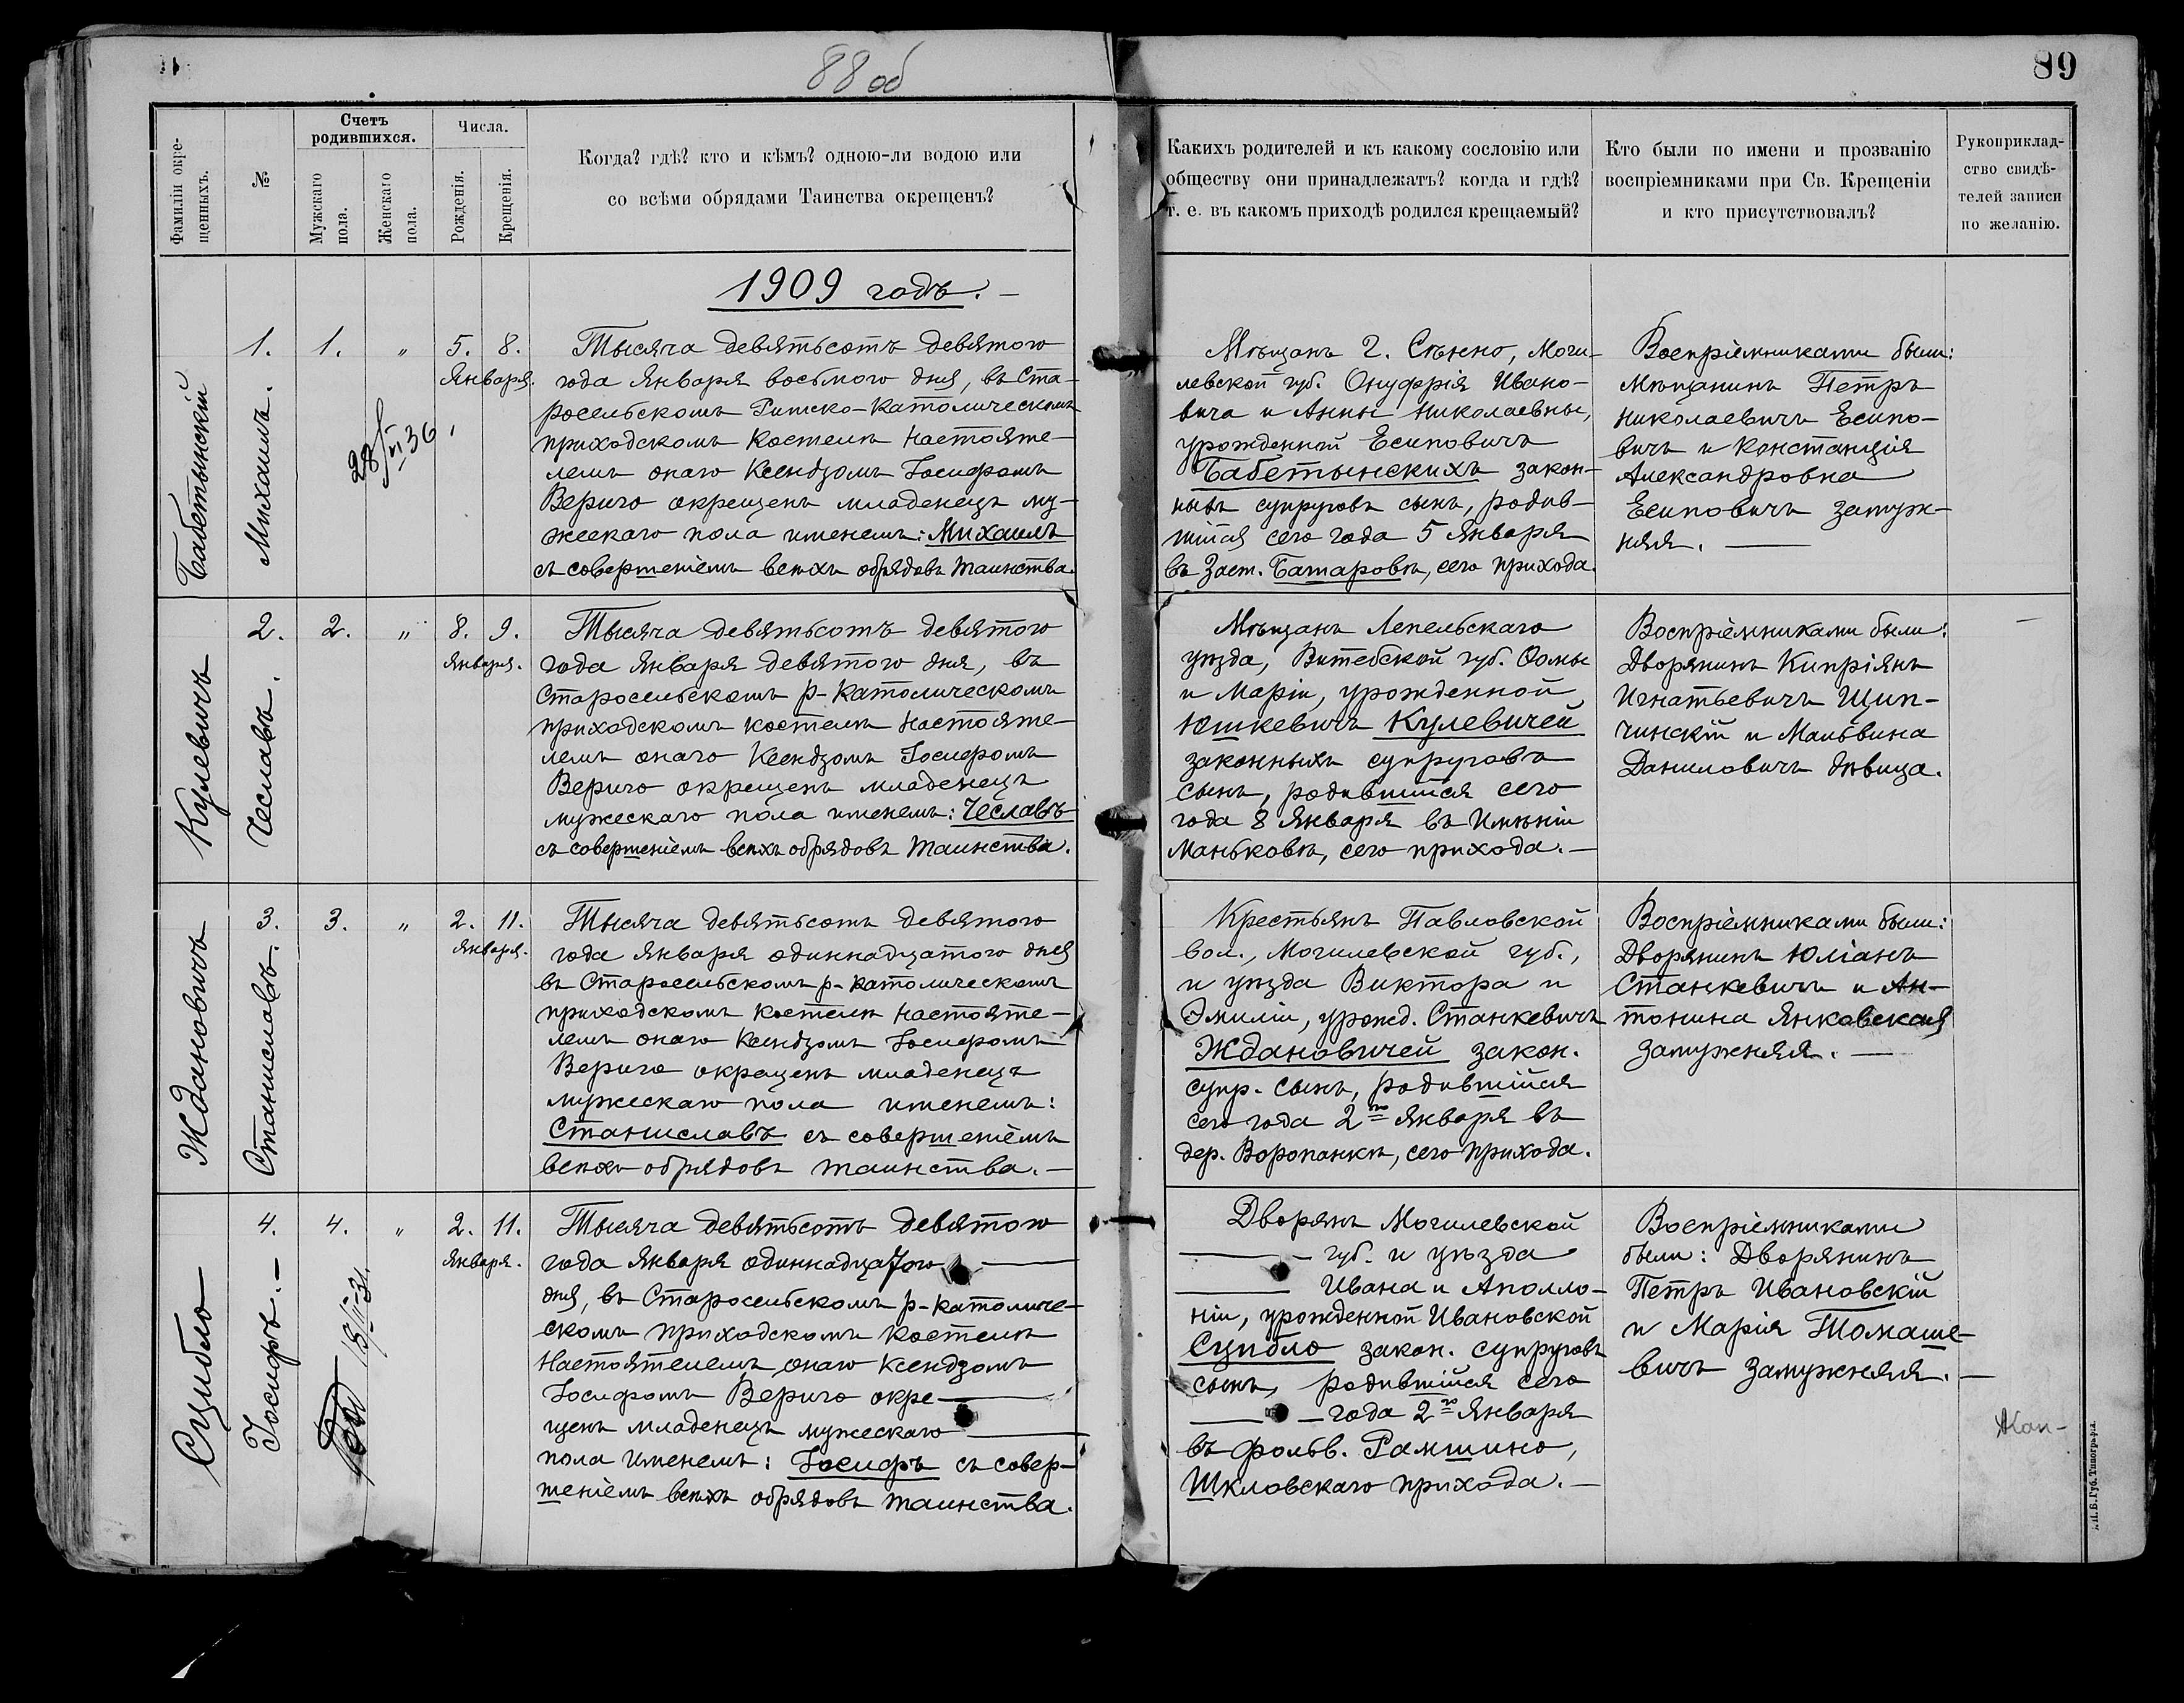 88 об
89
Фамиліи окре-
щенныхъ.
№
Счетъ
родившихся.
Мужскаго
пола.
Женскаго
пола.
Числа.
Рожденія.
Крещенія.
Когда? гдѣ? кто и кѣмъ? одною-ли водою или
со всѣми обрядами Таинства окрещенъ?
Какихъ родителей и къ какому сословію или
обществу они принадлежатъ? когда и гдѣ?
т. е. въ какомъ приходѣ родился крещаемый?
Кто были по имени и прозванію
воспріемниками при Св. Крещеніи
и кто присутствовалъ?
Рукоприклад-
ство свидѣ-
телей записи
по желанію.
1909 годъ. —
Бабетынскій
Михаилъ.
1. 1. „ 5. 8.
Января.
28/VI 36.
Тысяча девятьсотъ девятого
года Января восьмого дня, въ Ста-
росельскомъ Римско-Католическомъ
приходскомъ Костелѣ Настояте-
лемъ онаго Ксендзомъ Іосифомъ
Вериго окрещенъ младенецъ му-
жескаго пола именемъ: Михаилъ
съ совершеніемъ всѣхъ обрядовъ Таинства.
Мѣщанъ г. Сѣнно, Моги-
левской губ. Онуфрія Ивано-
вича и Анны Николаевны,
урожденной Есиповичъ
Бабетынскихъ закон-
ныхъ супруговъ сынъ, родив-
шійся сего года 5 Января
въ Заст. Батаровкѣ, сего прихода.
Воспріемниками были:
Мѣщанинъ Петръ
Николаевичъ Есипо-
вичъ и Констанція
Александровна
Есиповичъ замуж-
няя. —
Кулевичъ
Чеславъ.
2. 2. „ 8. 9.
Января.
Тысяча девятьсотъ девятого
года Января девятого дня, въ
Старосельскомъ р-Католическомъ
приходскомъ костелѣ Настояте-
лемъ онаго Ксендзомъ Іосифомъ
Вериго окрещенъ младенецъ
мужескаго пола именемъ: Чеславъ
съ совершеніемъ всѣхъ обрядовъ Таинства.
Мѣщанъ Лепельскаго
уѣзда, Витебской губ. Ѳомы
и Маріи, урожденной
Юшкевичъ Кулевичей
законныхъ супруговъ
сынъ, родившійся сего
года 8 Января въ Имѣніи
Маньковѣ, сего прихода. —
Воспріемниками были:
Дворянинъ Кипріянъ
Игнатьевичъ Щип-
чинскій и Мальвина
Даниловичъ дѣвица.
Ждановичъ
Станиславъ.
3. 3. „ 2. 11.
Января.
Тысяча девятьсотъ девятого
года Января одиннадцатого дня
въ Старосельскомъ р-католическомъ
приходскомъ Костелѣ Настояте-
лемъ онаго Ксендзомъ Іосифомъ
Вериго окрещенъ младенецъ
мужескаго пола именемъ:
Станиславъ съ совершеніемъ
всѣхъ обрядовъ таинства. —
Крестьянъ Павловской
вол., Могилевской губ.,
и уѣзда Виктора и
Эмиліи, урожд. Станкевичъ
Ждановичей закон.
супр. сынъ, родившійся
сего года 2го Января въ
дер. Воропанкѣ, сего прихода.
Воспріемниками были:
Дворянинъ Юліанъ
Станкевичъ и Ан-
тонина Янковская
замужняя. —
Суцибло
Іосифъ. —
4. 4. „ 2. 11.
Января.
Тысяча девятьсотъ девятого
года Января одиннадцатого —
дня, въ Старосельскомъ р-католиче-
скомъ приходскомъ Костелѣ
Настоятелемъ онаго Ксендзомъ
Іосифомъ Вериго окре —
щенъ младенецъ мужескаго —
пола именемъ: Іосифъ съ совер-
шеніемъ всѣхъ обрядовъ таинства.
Дворянъ Могилевской
— губ. и уѣзда
— Ивана и Аполло-
ніи, урожденной Ивановской
Сцибло закон. супруговъ
сынъ, родившійся сего
— года 2го Января
въ фольв. Рамшино,
Шкловскаго прихода. —
Воспріемниками
были: Дворянинъ
Петръ Ивановскій
и Марія Томаше-
вичъ замужняя. —